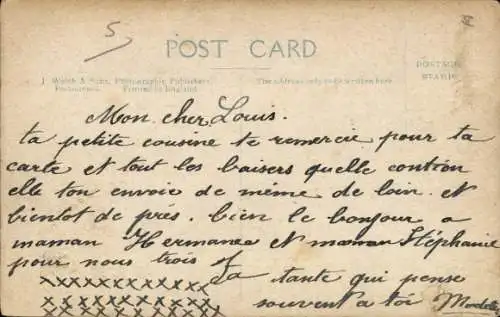 5
POST CARD
J. Welch & Sons, Photographic Publishers, Portsmouth. Printed in England
The address only to be written here
POSTAGE STAMP
Mon cher Louis.
ta petite cousine te remercie pour ta
carte et tout les baisers quelle contien
elle ton envoie de même de loin. et
bientot de près. bien le bonjour a
maman Hermance et maman Stéphanie
pour nous trois
ta tante qui pense
souvent a toi
xxxxxxxxxxxxx
xxxxxxxxxxxxx
xxxxxxxxxxxxx